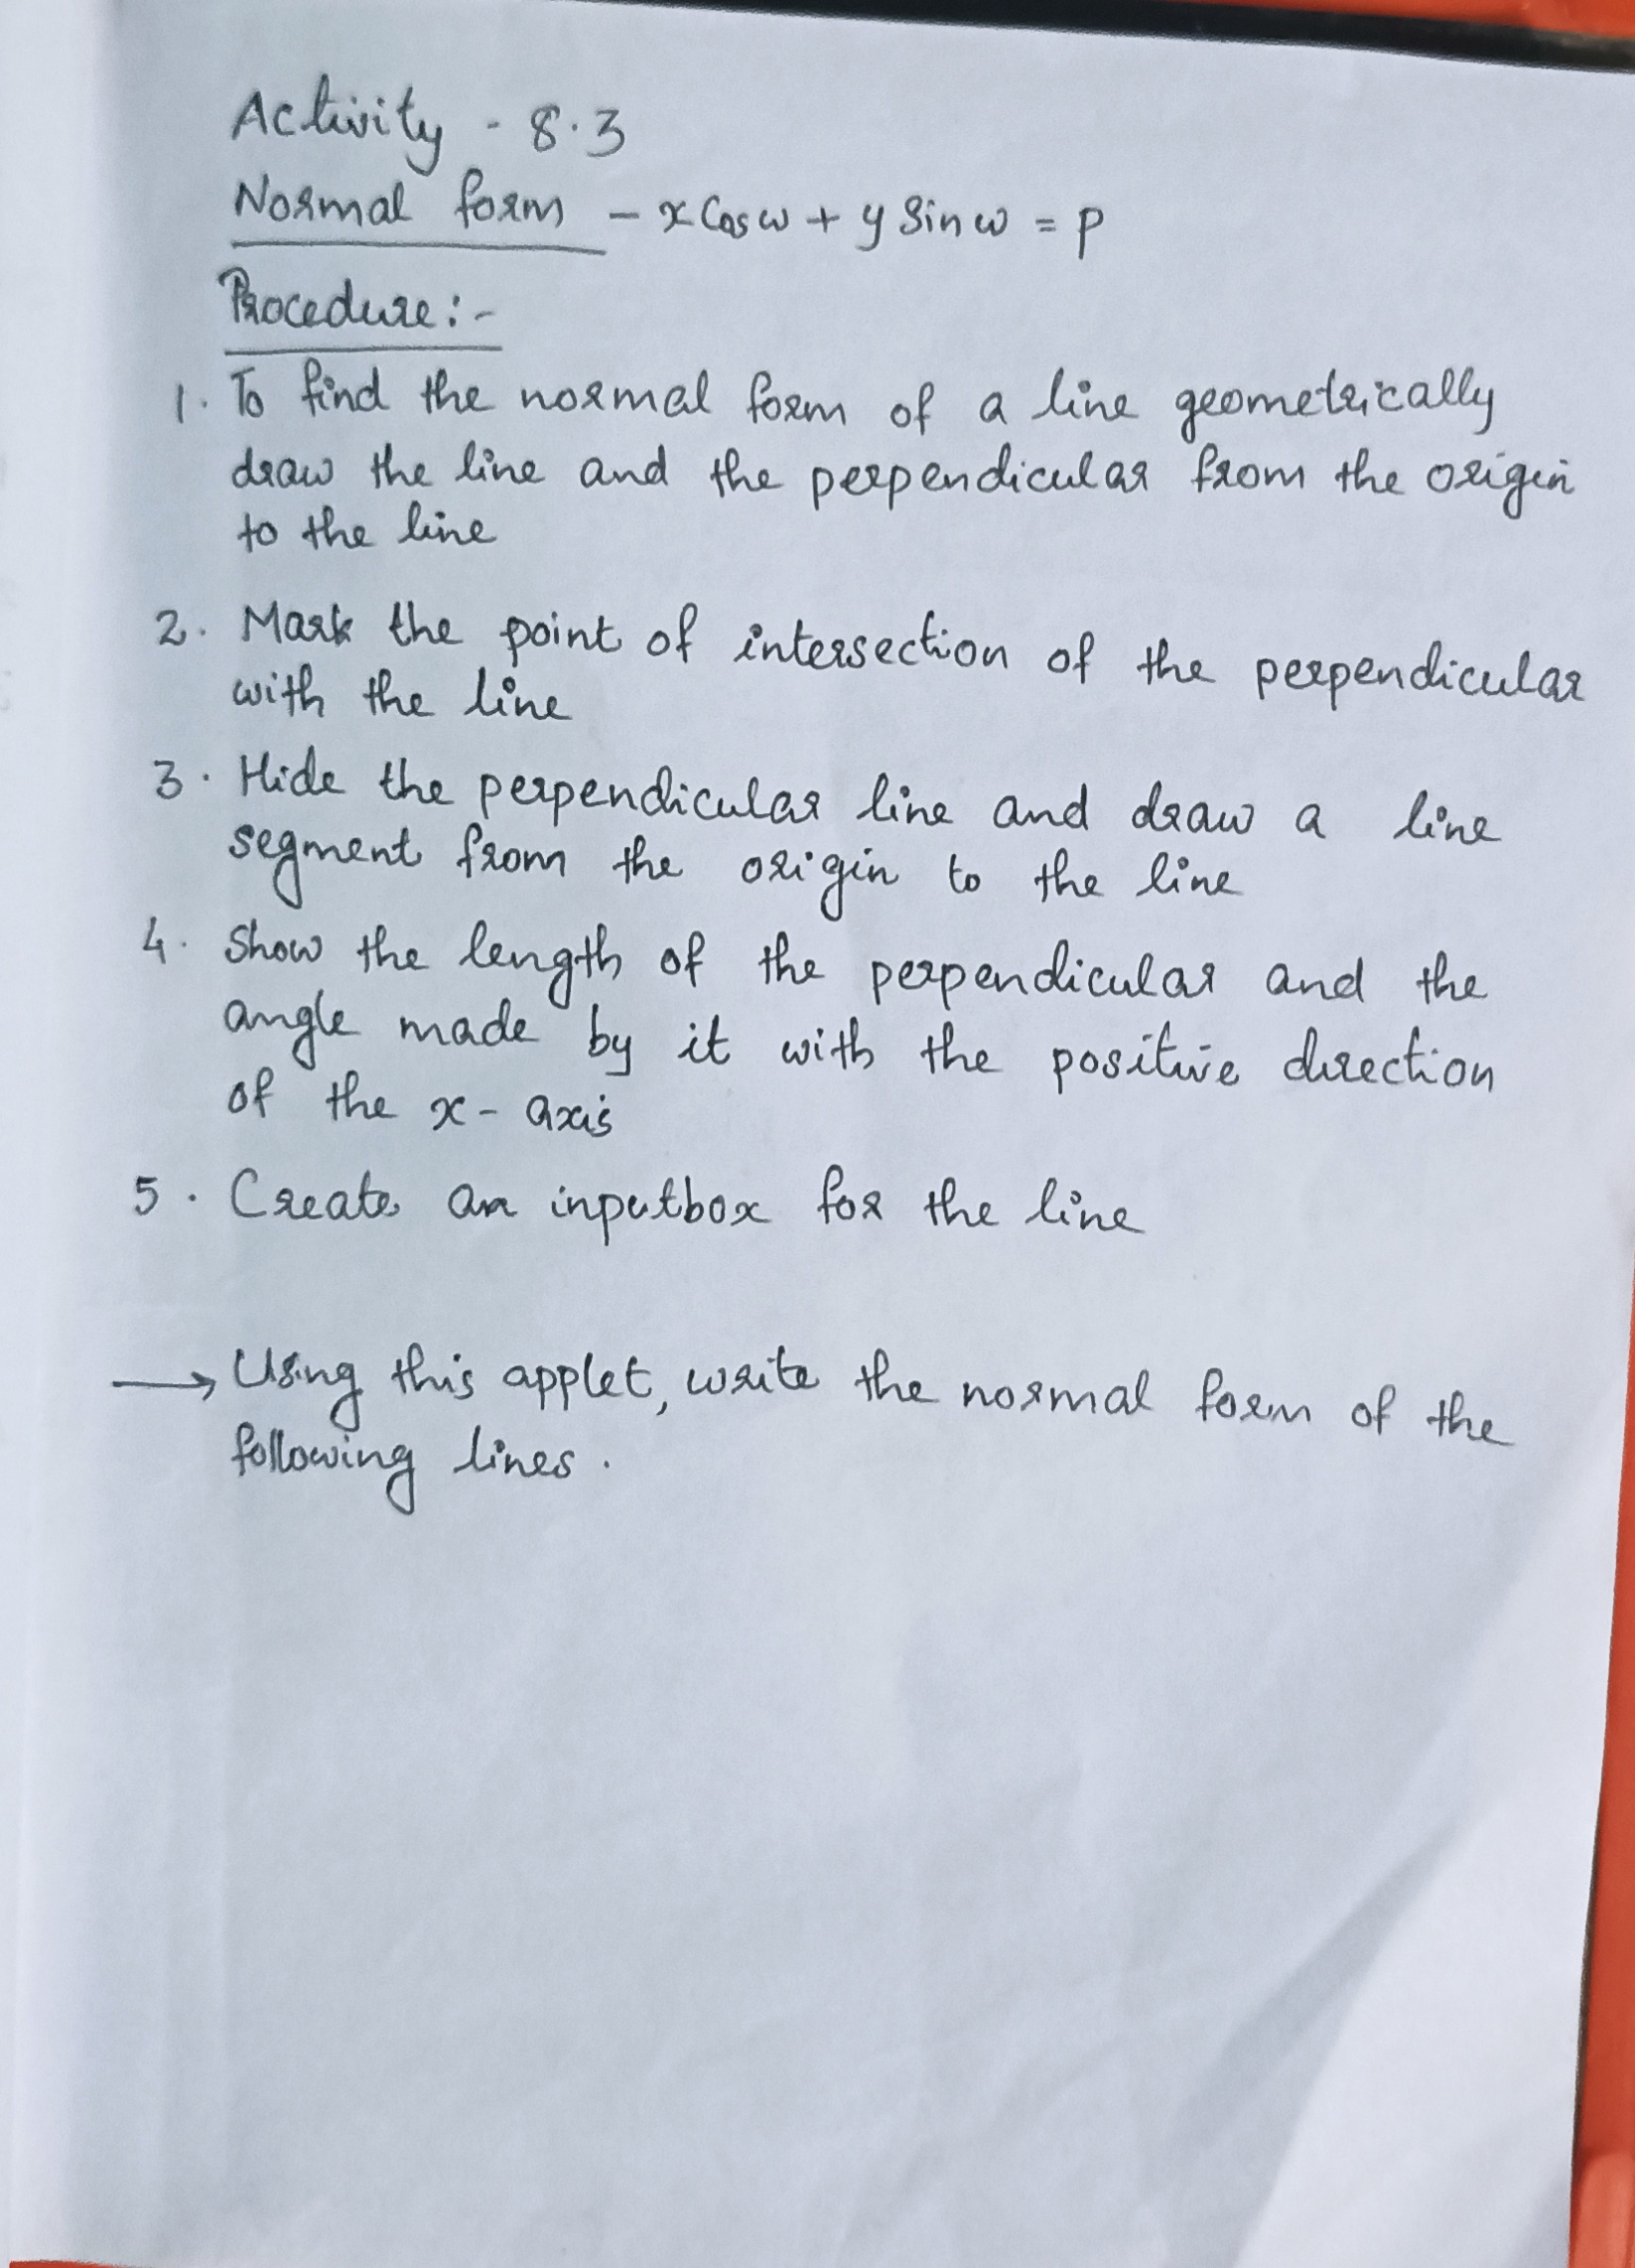 Activity - 8.3
Normal form - x Cos ω + y Sin ω = p
Procedure:-
1. To find the normal form of a line geometrically
draw the line and the perpendicular from the origin
to the line
2. Mark the point of intersection of the perpendicular
with the line
3. Hide the perpendicular line and draw a line
segment from the origin to the line
4. Show the length of the perpendicular and the
angle made by it with the positive direction
of the x-axis
5. Create an inputbox for the line
→ Using this applet, write the normal form of the
following lines.